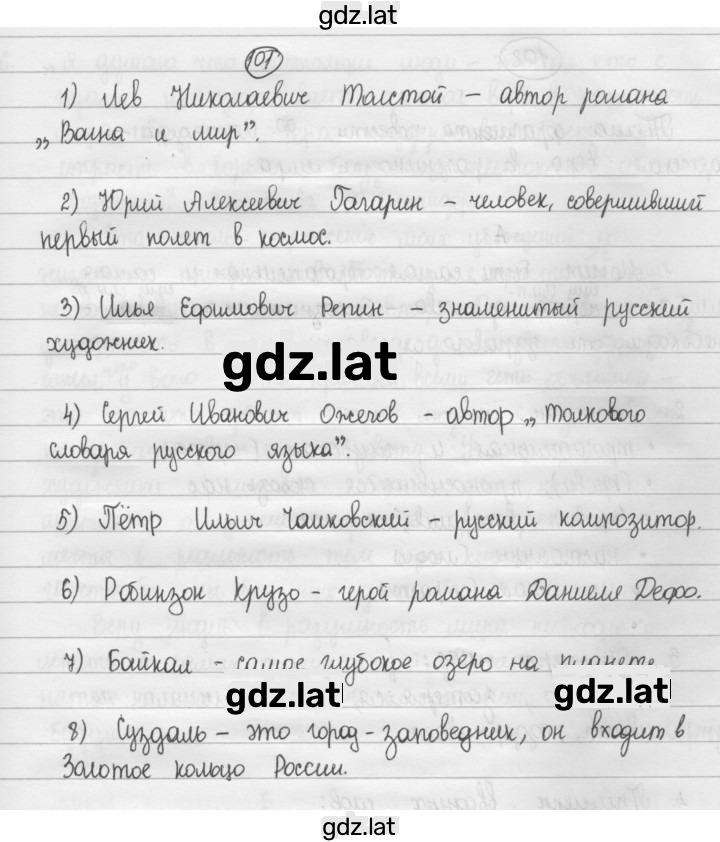 gdz.lat
101
1) Лев Николаевич Толстой – автор романа
„Воина и мир”.
2) Юрий Алексеевич Гагарин – человек, совершивший
первый полет в космос.
3) Илья Ефимович Репин – знаменитый русский
художник.
gdz.lat
4) Сергей Иванович Ожегов – автор „Толкового
словаря русского языка”.
5) Пётр Ильич Чайковский – русский композитор.
6) Робинзон Крузо – герой романа Даниеля Дефо.
7) Байкал – самое глубокое озеро на планете
gdz.lat gdz.lat
8) Суздаль – это город-заповедник, он входит в
Золотое кольцо России.
gdz.lat